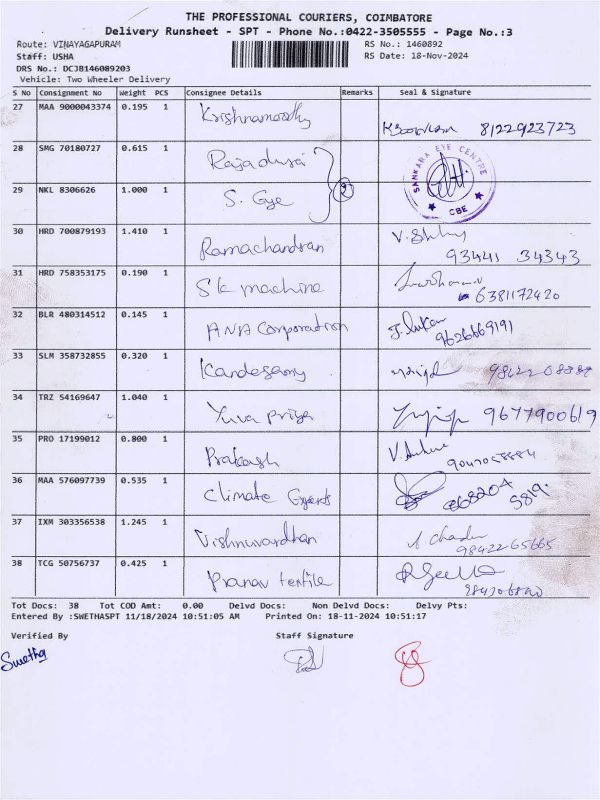 THE PROFESSIONAL COURIERS, COIMBATORE
Delivery Runsheet - SPT - Phone No.:0422-3505555 - Page No.:3
Route: VINAYAGAPURAM RS No.: 1460892
Staff: USHA RS Date: 18-Nov-2024
DRS No.: DCJB146089203
Vehicle: Two Wheeler Delivery
S No Consignment No Weight PCS Consignee Details Remarks Seal & Signature
27 MAA 9000043374 0.195 1 Krishnamoorthy 8122923723
28 SMG 70180727 0.615 1 Rajadurai
SANKARA EYE CENTRE
CBE
29 NKL 8306626 1.000 1 S. Eye 2
30 HRD 700879193 1.410 1 Ramachandran 93441 34343
31 HRD 758353175 0.190 1 Sk machine 6381172420
32 BLR 480314512 0.145 1 ANA Corporation 9626669191
33 SLM 358732855 0.320 1 Kandasamy
34 TRZ 54169647 1.040 1 Yuva Priya 9677900619
35 PRO 17199012 0.800 1 Prakash
36 MAA 576097739 0.535 1 Climate Experts
37 IXM 303356538 1.245 1 Vishnuvardhan 9842265665
38 TCG 50756737 0.425 1 Pranav textile
Tot Docs: 38 Tot COD Amt: 0.00 Delvd Docs: Non Delvd Docs: Delvy Pts:
Entered By :SWETHASPT 11/18/2024 10:51:05 AM Printed On: 18-11-2024 10:51:17
Verified By Staff Signature
Swetha